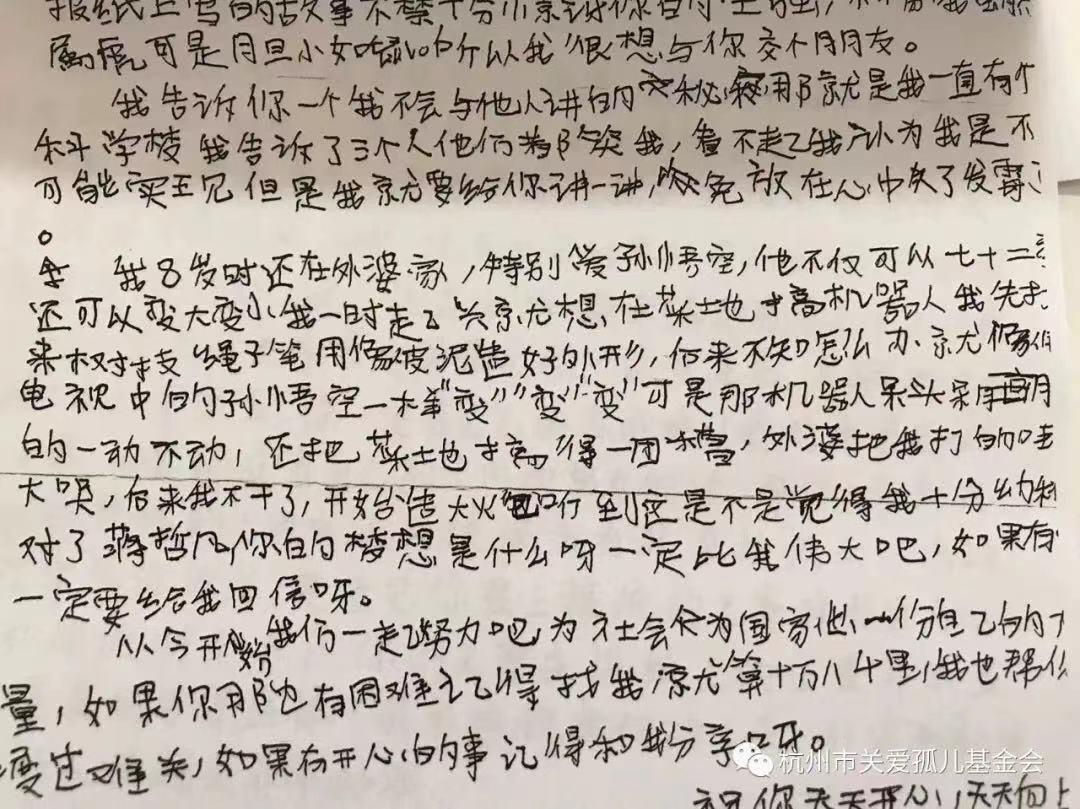 报纸上写的故事不禁十分
可是胆小如鼠所以我很想与你交个朋友。
我告诉你一个我不会与他人讲的秘密那就是我一直有个
科学梦我告诉了3个人他们都笑我,看不起我认为我是不
可能实现但是我就要给你讲一讲,以免放在心中失了发霉
。
我8岁时还在外婆家,特别爱孙悟空,他不仅可以七十二
还可以变大变小我一时起了兴就想在菜土地搞机器人我先找
来树枝绳子笔用像皮泥造好外形,后来不知怎么办就像
电视中的孙悟空一样"变""变""变"可是那机器人呆头呆脑
的一动不动,还把菜土地搞得一团糟,外婆把我打的哇
大哭,后来我不干了,开始造大火 听到这是不是觉得我十分幼稚
对了蒋哲凡你的梦想是什么呀一定比我伟大吧,如果有
一定要给我回信呀。
从今开始我们一起努力吧为社会人为国家做一份自己的力
量,如果你那边有困难记得找我就算十万八千里,我也帮你
渡过难关,如果有开心的事记得和我分享呀。
祝你天天开心,天天向上
杭州市关爱孤儿基金会